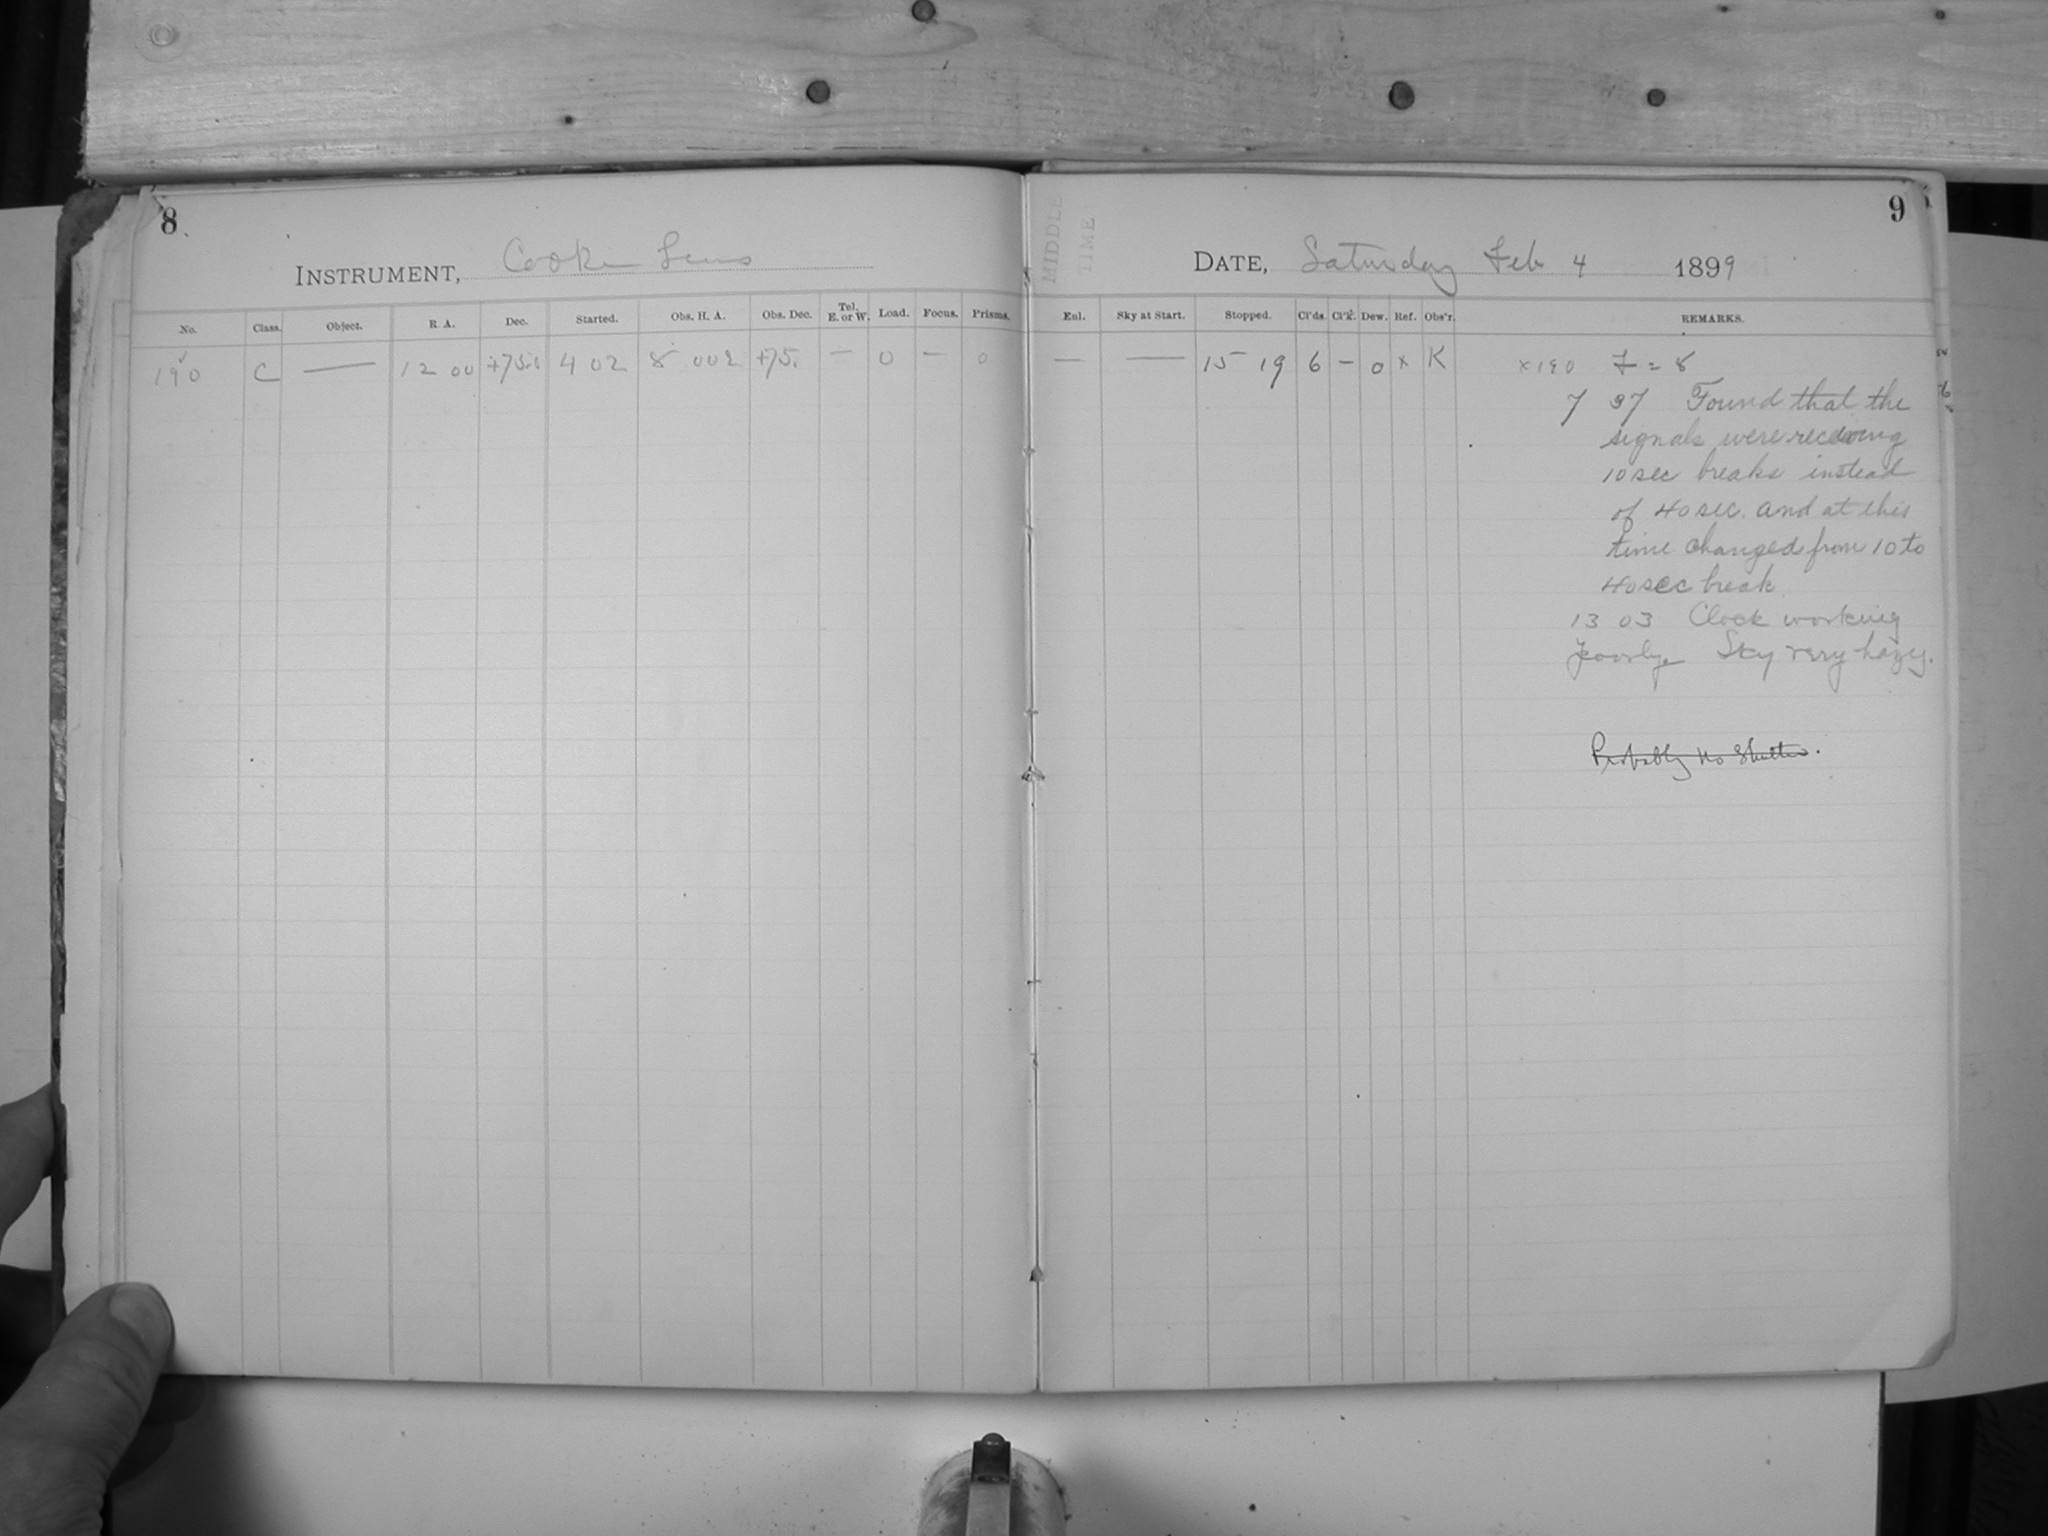 8
INSTRUMENT, Cooke Lens
No. Class. Object. R. A. Dec. Started. Obs. H. A. Obs. Dec. Tel. E. or W. Load. Focus. Prisms.
190 C — 12 00 +75.0 4 02 8 002 +75. — 0 — 0
MIDDLE
TIME
9
DATE, Saturday Feb 4 1899
Enl. Sky at Start. Stopped. Cl'ds. Cl'k. Dew. Ref. Obs'r. REMARKS.
— — 15 19 6 – 0 x K x190 I = 8
7 37 Found that the
signals were receiving
10 sec breaks instead
of 40 sec. and at this
time changed from 10 to
40 sec break
13 03 Clock working
poorly. Sky very hazy.
Probably no Shutter.